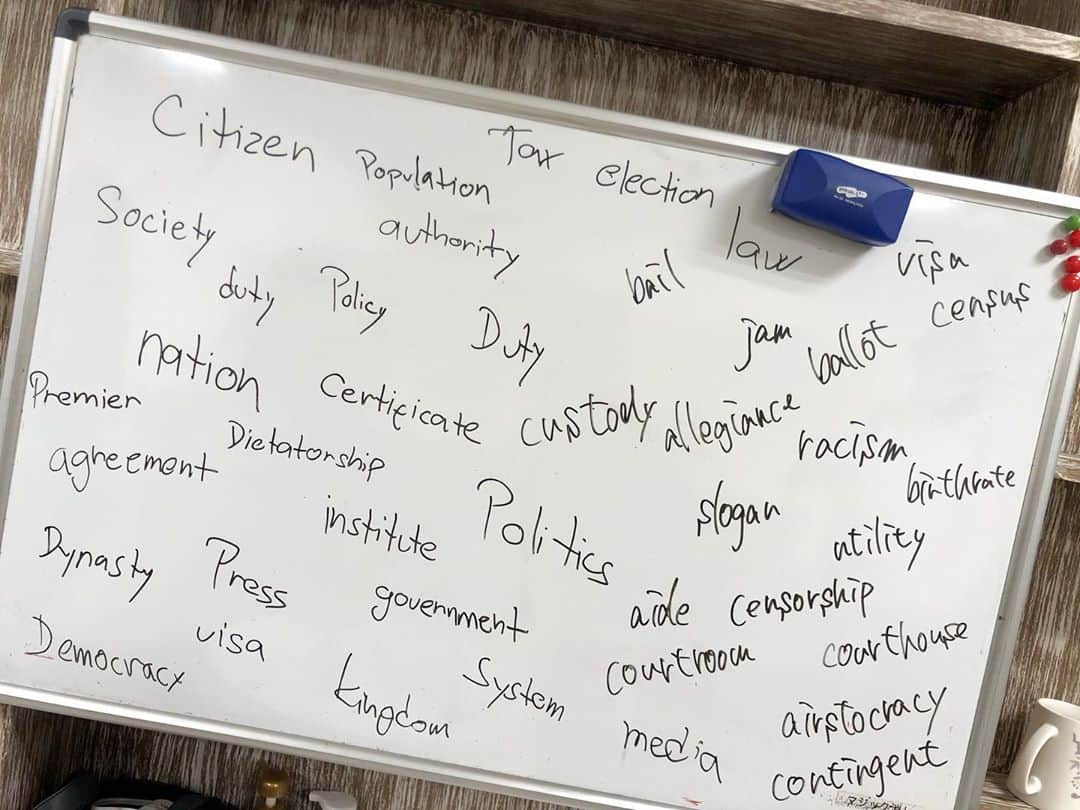 Citizen
Population
Tax
election
Society
authority
law
visa
duty
Policy
Duty
bail
jam
ballot
census
nation
Certificate
custody
allegiance
racism
birthrate
Premier
Dictatorship
agreement
institute
Politics
slogan
utility
Dynasty
Press
government
aide
censorship
Democracy
visa
kingdom
System
courtroom
courthouse
media
airstocracy
contingent